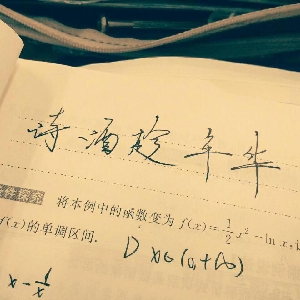 诗酒趁年华
将本例中的函数变为 f(x)=\frac{1}{2}x^2-\ln x,
f(x)的单调区间.
D x∈(0,+∞)
x-\frac{1}{x}